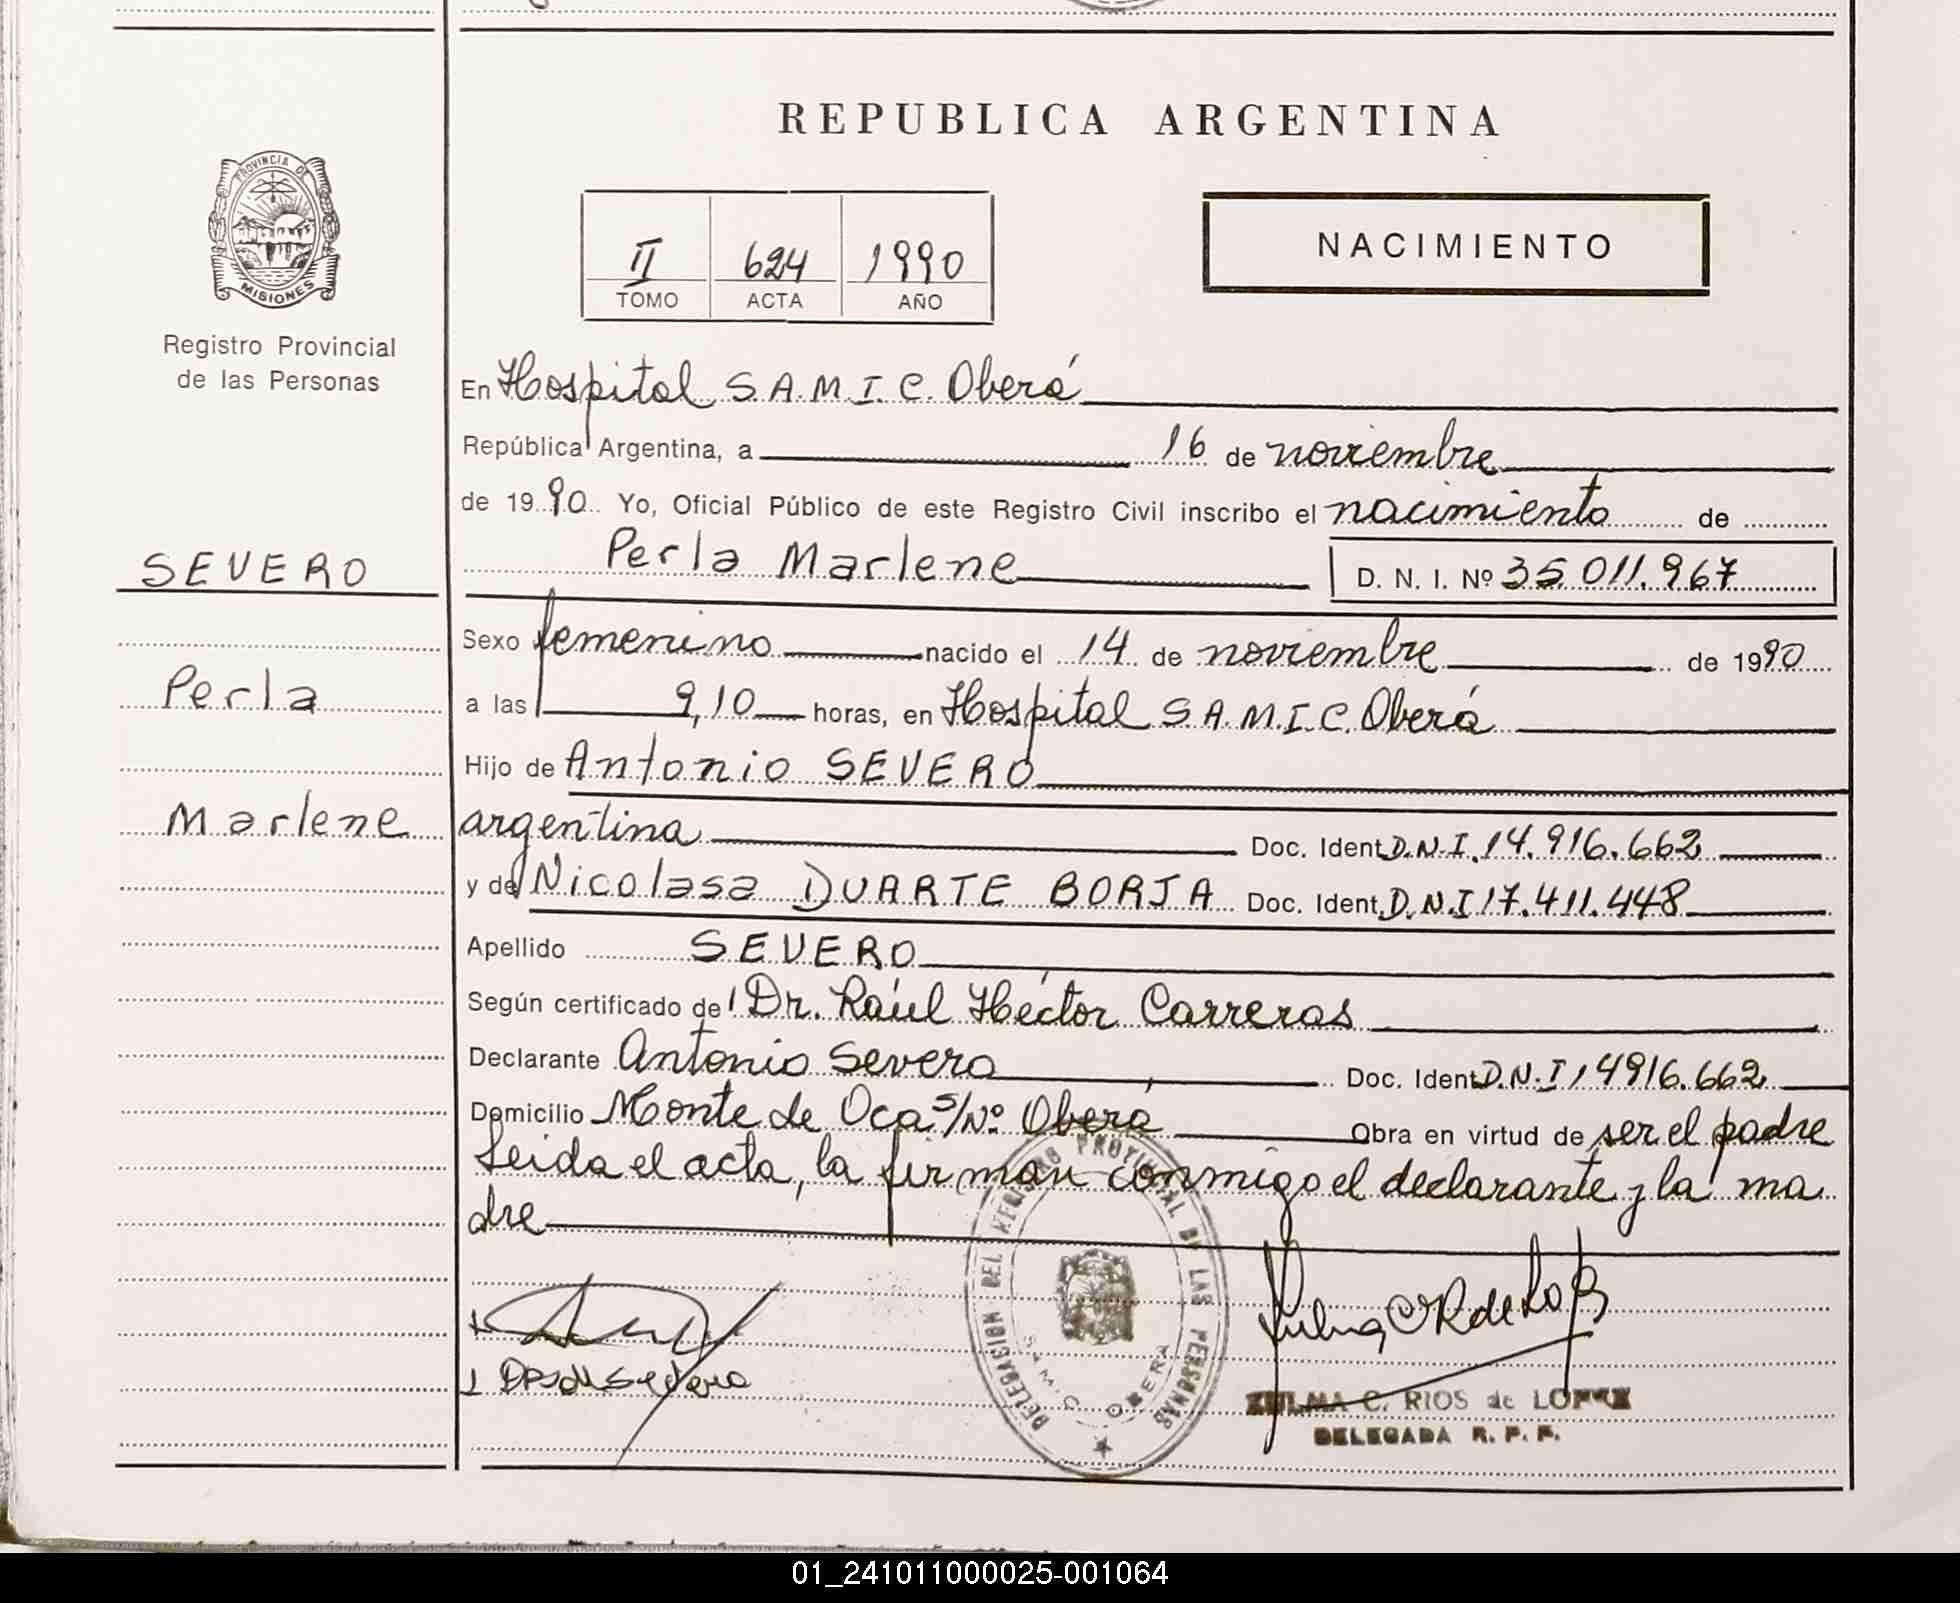 REPUBLICA ARGENTINA
PROVINCIA DE
MISIONES
Registro Provincial
de las Personas
II 624 1990
TOMO ACTA AÑO
NACIMIENTO
En Hospital S.A.M.I.C. Oberá
República Argentina, a 16 de noviembre
de 1990 Yo, Oficial Público de este Registro Civil inscribo el nacimiento de
SEVERO
Perla Marlene D. N. I. Nº 35.011.967
Sexo femenino nacido el 14 de noviembre de 1990
Perla
a las 9,10 horas, en Hospital S.A.M.I.C. Oberá
Hijo de Antonio SEVERO
Marlene
argentina Doc. Ident. D.N.I. 14.916.662
y de Nicolasa DUARTE BORJA Doc. Ident. D.N.I 17.411.448
Apellido SEVERO
Según certificado de Dr. Raúl Héctor Carreras
Declarante Antonio Severo Doc. Ident. D.N.I 14916.662
Domicilio Monte de Oca s/Nº Oberá Obra en virtud de ser el padre
Leida el acta, la firman conmigo el declarante y la ma
dre
DELEGACION DEL REGISTRO PROVINCIAL DE LAS PERSONAS
S.A.M.I.C. OBERA
ZULMA C. RIOS de LOPEZ
DELEGADA R. P. P.
01_241011000025-001064